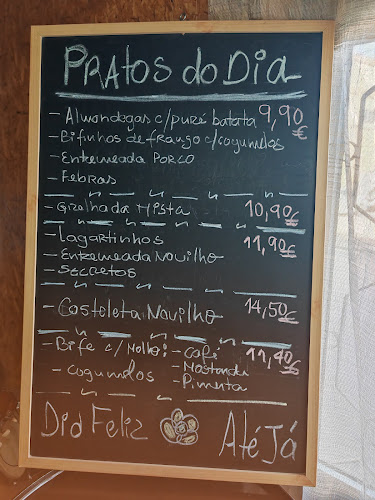 PRATOS do DIA
- Almondegas c/puré batata 9,90€
- Bifinhos de frango c/cogumelos
- Entremeada PORCO
- Febras
- Grelhada Mista 10,90€
- Lagartinhos 11,90€
- Entremeada Novilho
- Secretos
- Costeleta Novilho 14,50€
- Bife c/ Molho: - Café 11,40€
- Mostarda
- Cogumelos - Pimenta
Dia Feliz Até Já